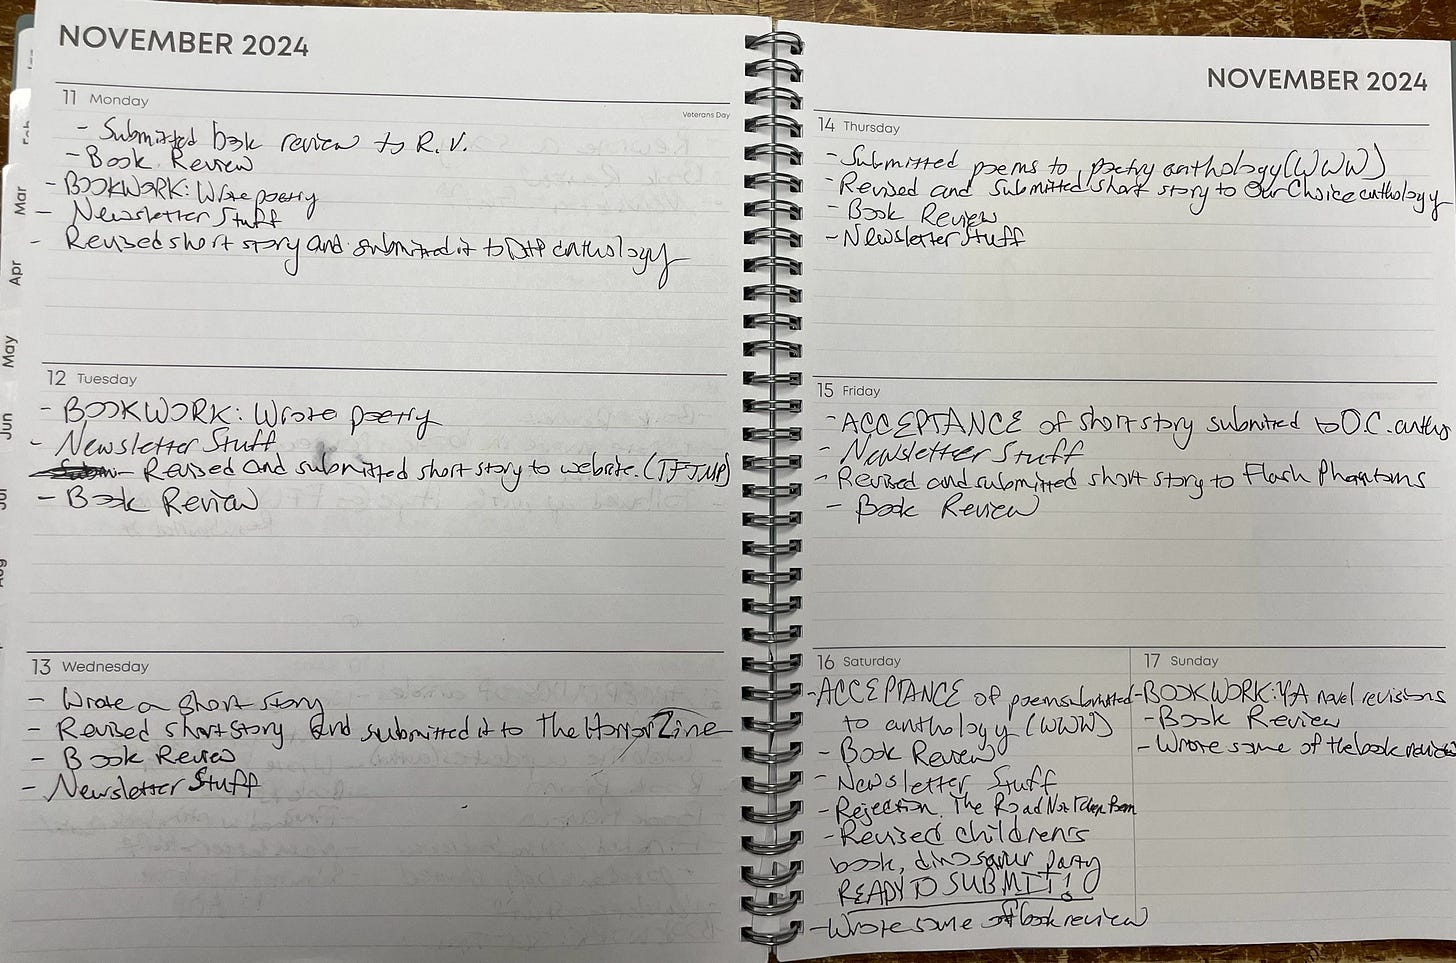 NOVEMBER 2024
11 Monday
Veterans Day
- Submitted book review to R.V.
- Book Review
- BOOKWORK: Wrote poetry
- Newsletter Stuff
- Revised short story and submitted it to DHP anthology
12 Tuesday
- BOOKWORK: Wrote poetry
- Newsletter Stuff
- Revised and submitted short story to website. (TFTMP)
- Book Review
13 Wednesday
- Wrote a short story
- Revised short story and submitted it to The Horror Zine
- Book Review
- Newsletter Stuff
NOVEMBER 2024
14 Thursday
- Submitted poems to poetry anthology (WWW)
- Revised and submitted short story to Our Choice anthology
- Book Review
- Newsletter Stuff
15 Friday
- ACCEPTANCE of short story submitted to O.C. antho
- Newsletter Stuff
- Revised and submitted short story to Flash Phantoms
- Book Review
16 Saturday
- ACCEPTANCE of poem submitted
to anthology (WWW)
- Book Review
- Newsletter Stuff
- Rejection. The Road Not Taken Poem
- Revised children's
book, dinosaur party
READY TO SUBMIT!
- Wrote some of book review
17 Sunday
- BOOKWORK: YA novel revisions
- Book Review
- Wrote some of the book review
Mar
Apr
May
Jun